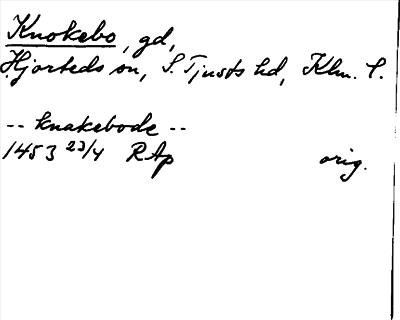 Knokebo, gd,
Hjorteds sn, S. Tjusts hd, Klm. l.
-- knakebode --
1453 23/4 RAp orig.